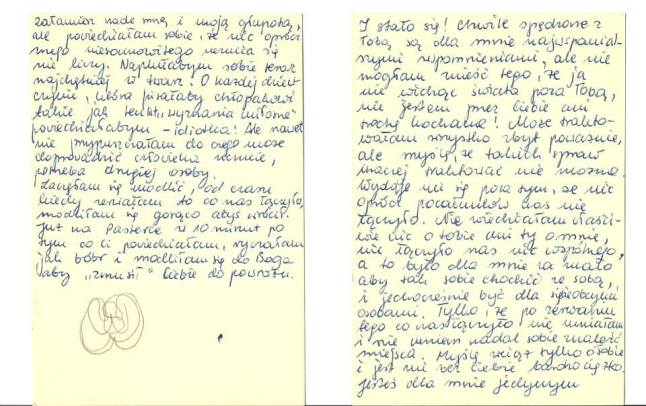 załamież nade mną i moją głupotą,
ale powiedziałam sobie, że nic oprócz
mego niesamowitego uczucia się
nie liczy. Naplułabym sobie teraz
najchętniej w twarz! O każdej dziew
czynie, która pisałaby chłopakowi
takie jak ten wyznania miłosne
powiedziałabym - idiotka! Ale nawet
nie przypuszczałam do czego może
doprowadzić człowieka uczucie,
potrzeba drugiej osoby.
Zaczęłam się modlić, od czasu
kiedy zerwałam to co nas łączyło,
modliłam się gorąco abyś wrócił.
Już na Pasterce w 10 minut po
tym co ci powiedziałam, ryczałam
jak bóbr i modliłam się do Boga
aby "zmusił" Ciebie do powrotu.
I stało się! Chwile spędzone z
Tobą są dla mnie najwspanial-
szymi wspomnieniami, ale nie
mogłam znieść tego, że ja
nie widząc świata poza Tobą,
nie jestem przez Ciebie ani
trochę kochana! Może trakto-
wałam wszystko zbyt poważnie,
ale myślę, że takich spraw
inaczej traktować nie można.
Wydaje mi się poza tym, że nic
oprócz pocałunków nas nie
łączyło. Nie wiedziałam właści-
wie nic o tobie ani ty o mnie,
nie łączyło nas nic wspólnego,
a to było dla mnie za mało
aby tak sobie chodzić ze sobą,
i jednocześnie być dla siebie obcymi
osobami. Tylko, że po zerwaniu
tego co nas łączyło nie umiałam
i nie umiem nadal sobie znaleść
miejsca. Myślę wciąż tylko o Tobie
i jest mi bez Ciebie bardzo ciężko.
Jesteś dla mnie jedynym